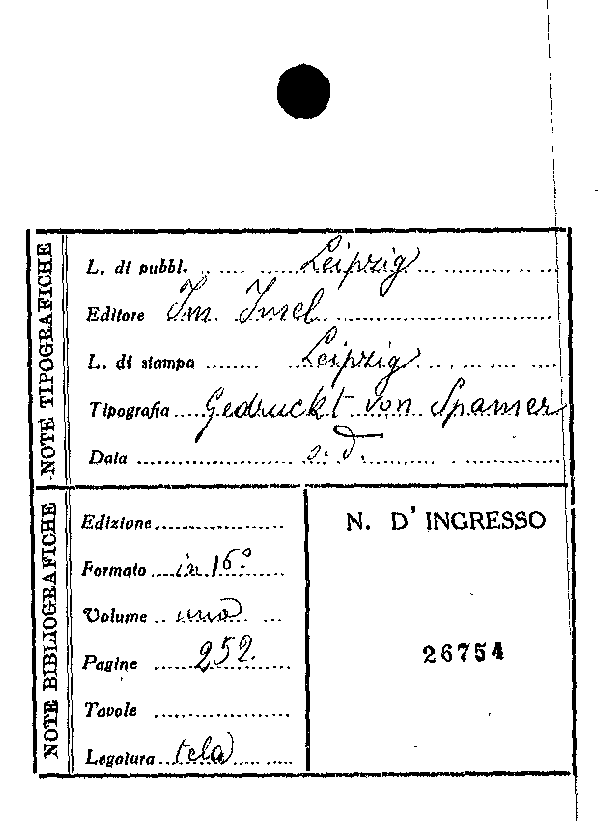 NOTE TIPOGRAFICHE
L. di pubbl. Leipzig
Editore Im Insel
L. di stampa Leipzig
Tipografia Gedruckt von Spamer
Data s. d.
NOTE BIBLIOGRAFICHE
Edizione
Formato in 16°
Volume uno
Pagine 252.
Tavole
Legatura tela
N. D'INGRESSO
26754